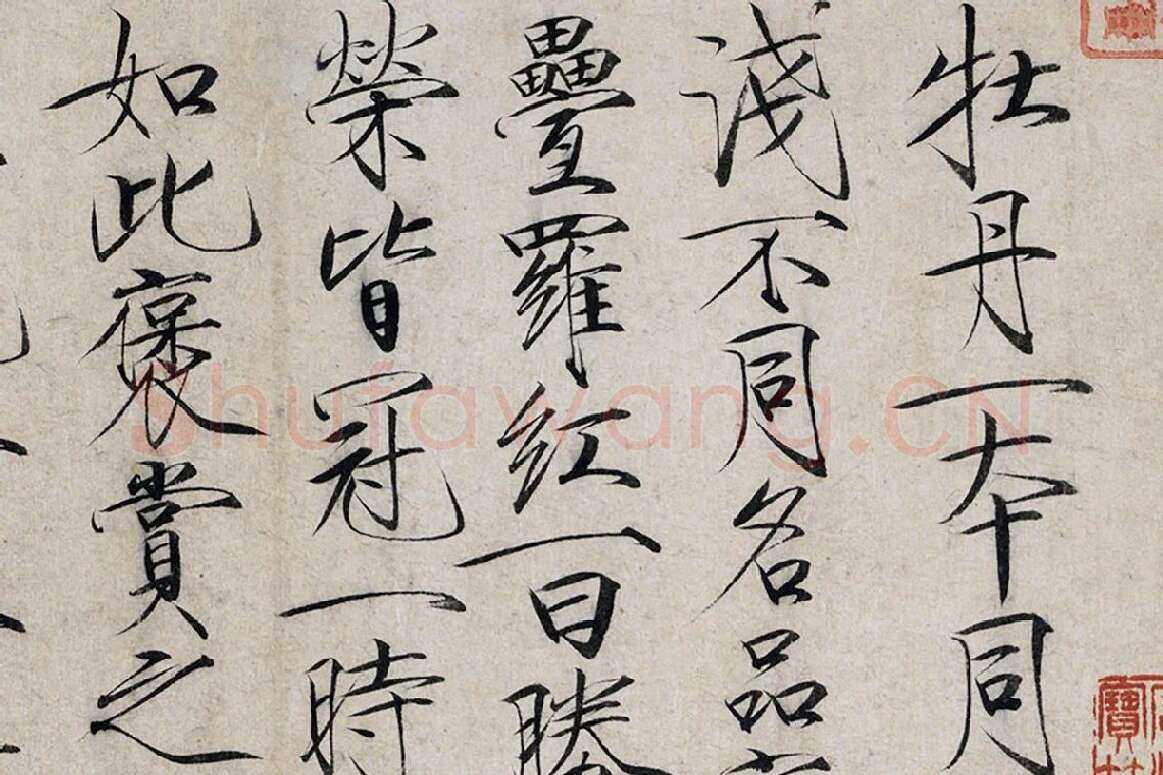 牡丹一本同
淺不同名品
疊羅紅一曰勝
榮皆冠一時
如此褒賞之
Shufawang.CN